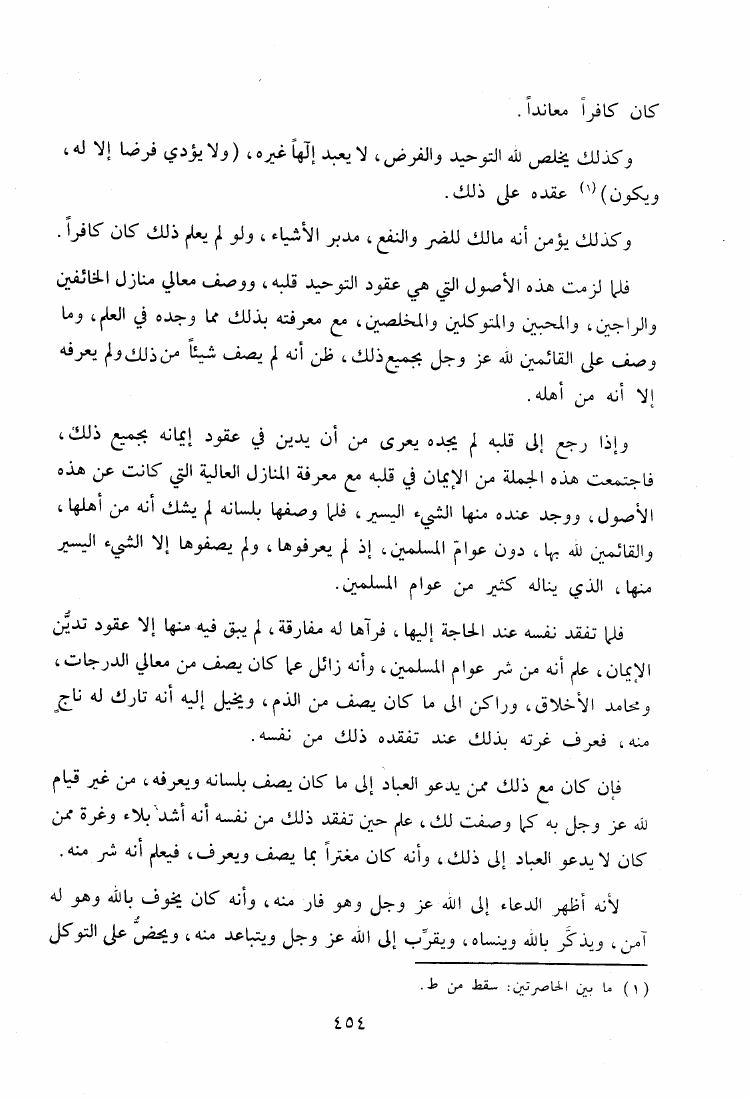 كان كافراً معانداً.
وكذلك يخلص لله التوحيد والفرض، لا يعبد إلّهاً غيره، (ولا يؤدي فرضا إلا له،
ويكون)(١) عقده على ذلك.
وكذلك يؤمن أنه مالك للضر والنفع، مدبر الأشياء، ولو لم يعلم ذلك كان كافراً.
فلما لزمت هذه الأصول التي هي عقود التوحيد قلبه، ووصف معالي منازل الخائفين
والراجين، والمحبين والمتوكلين والمخلصين، مع معرفته بذلك مما وجده في العلم، وما
وصف على القائمين لله عز وجل بجميع ذلك، ظن أنه لم يصف شيئاً من ذلك ولم يعرفه
إلا أنه من أهله.
وإذا رجع إلى قلبه لم يجده يعرى من أن يدين في عقود إيمانه بجميع ذلك،
فاجتمعت هذه الجملة من الإيمان في قلبه مع معرفة المنازل العالية التي كانت عن هذه
الأصول، ووجد عنده منها الشيء اليسير، فلما وصفها بلسانه لم يشك أنه من أهلها،
والقائمين لله بها، دون عوامّ المسلمين، إذ لم يعرفوها، ولم يصفوها إلا الشيء اليسير
منها، الذي يناله كثير من عوام المسلمين.
فلما تفقد نفسه عند الحاجة إليها، فرآها له مفارقة، لم يبق فيه منها إلا عقود تديُّن
الإيمان، علم أنه من شر عوام المسلمين، وأنه زائل عما كان يصف من معالي الدرجات،
ومحامد الأخلاق، وراكن الى ما كان يصف من الذم، ويخيل إليه أنه تارك له ناجٍ
منه، فعرف غرته بذلك عند تفقده ذلك من نفسه.
فإن كان مع ذلك ممن يدعو العباد إلى ما كان يصف بلسانه ويعرفه، من غير قيام
لله عز وجل به كما وصفت لك، علم حين تفقد ذلك من نفسه أنه أشد بلاء وغرة ممن
كان لا يدعو العباد إلى ذلك، وأنه كان مغتراً بما يصف ويعرف، فيعلم أنه شر منه.
لأنه أظهر الدعاء إلى الله عز وجل وهو فار منه، وأنه كان يخوف بالله وهو له
آمن، ويذكَّر بالله وينساه، ويقرِّب إلى الله عز وجل ويتباعد منه، ويحضُّ على التوكل
(١) ما بين الحاصرتين: سقط من ط.
٤٥٤